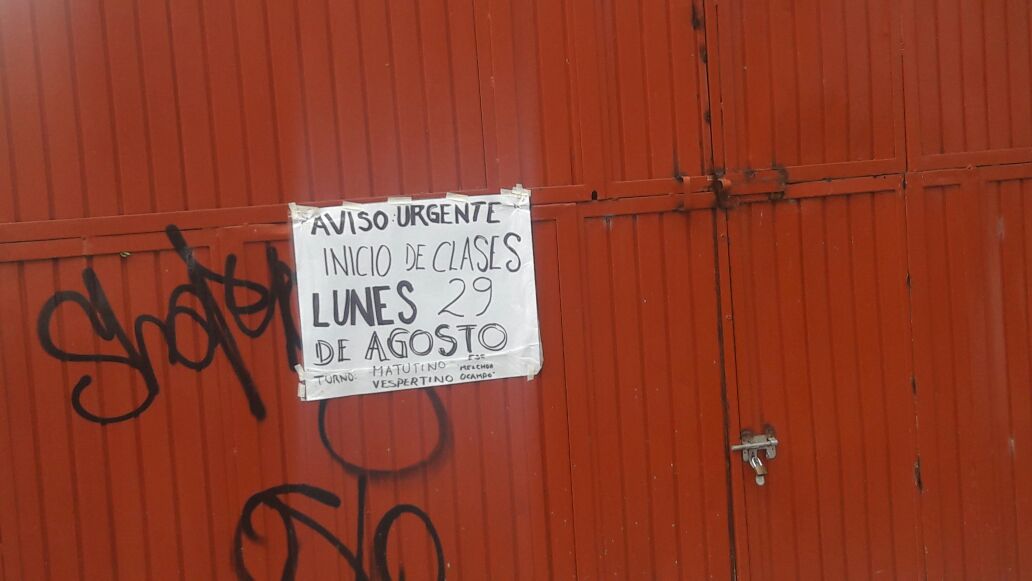 AVISO URGENTE
INICIO DE CLASES
LUNES 29
DE AGOSTO
TURNO: MATUTINO
VESPERTINO
MELCHOR
OCAMPO"